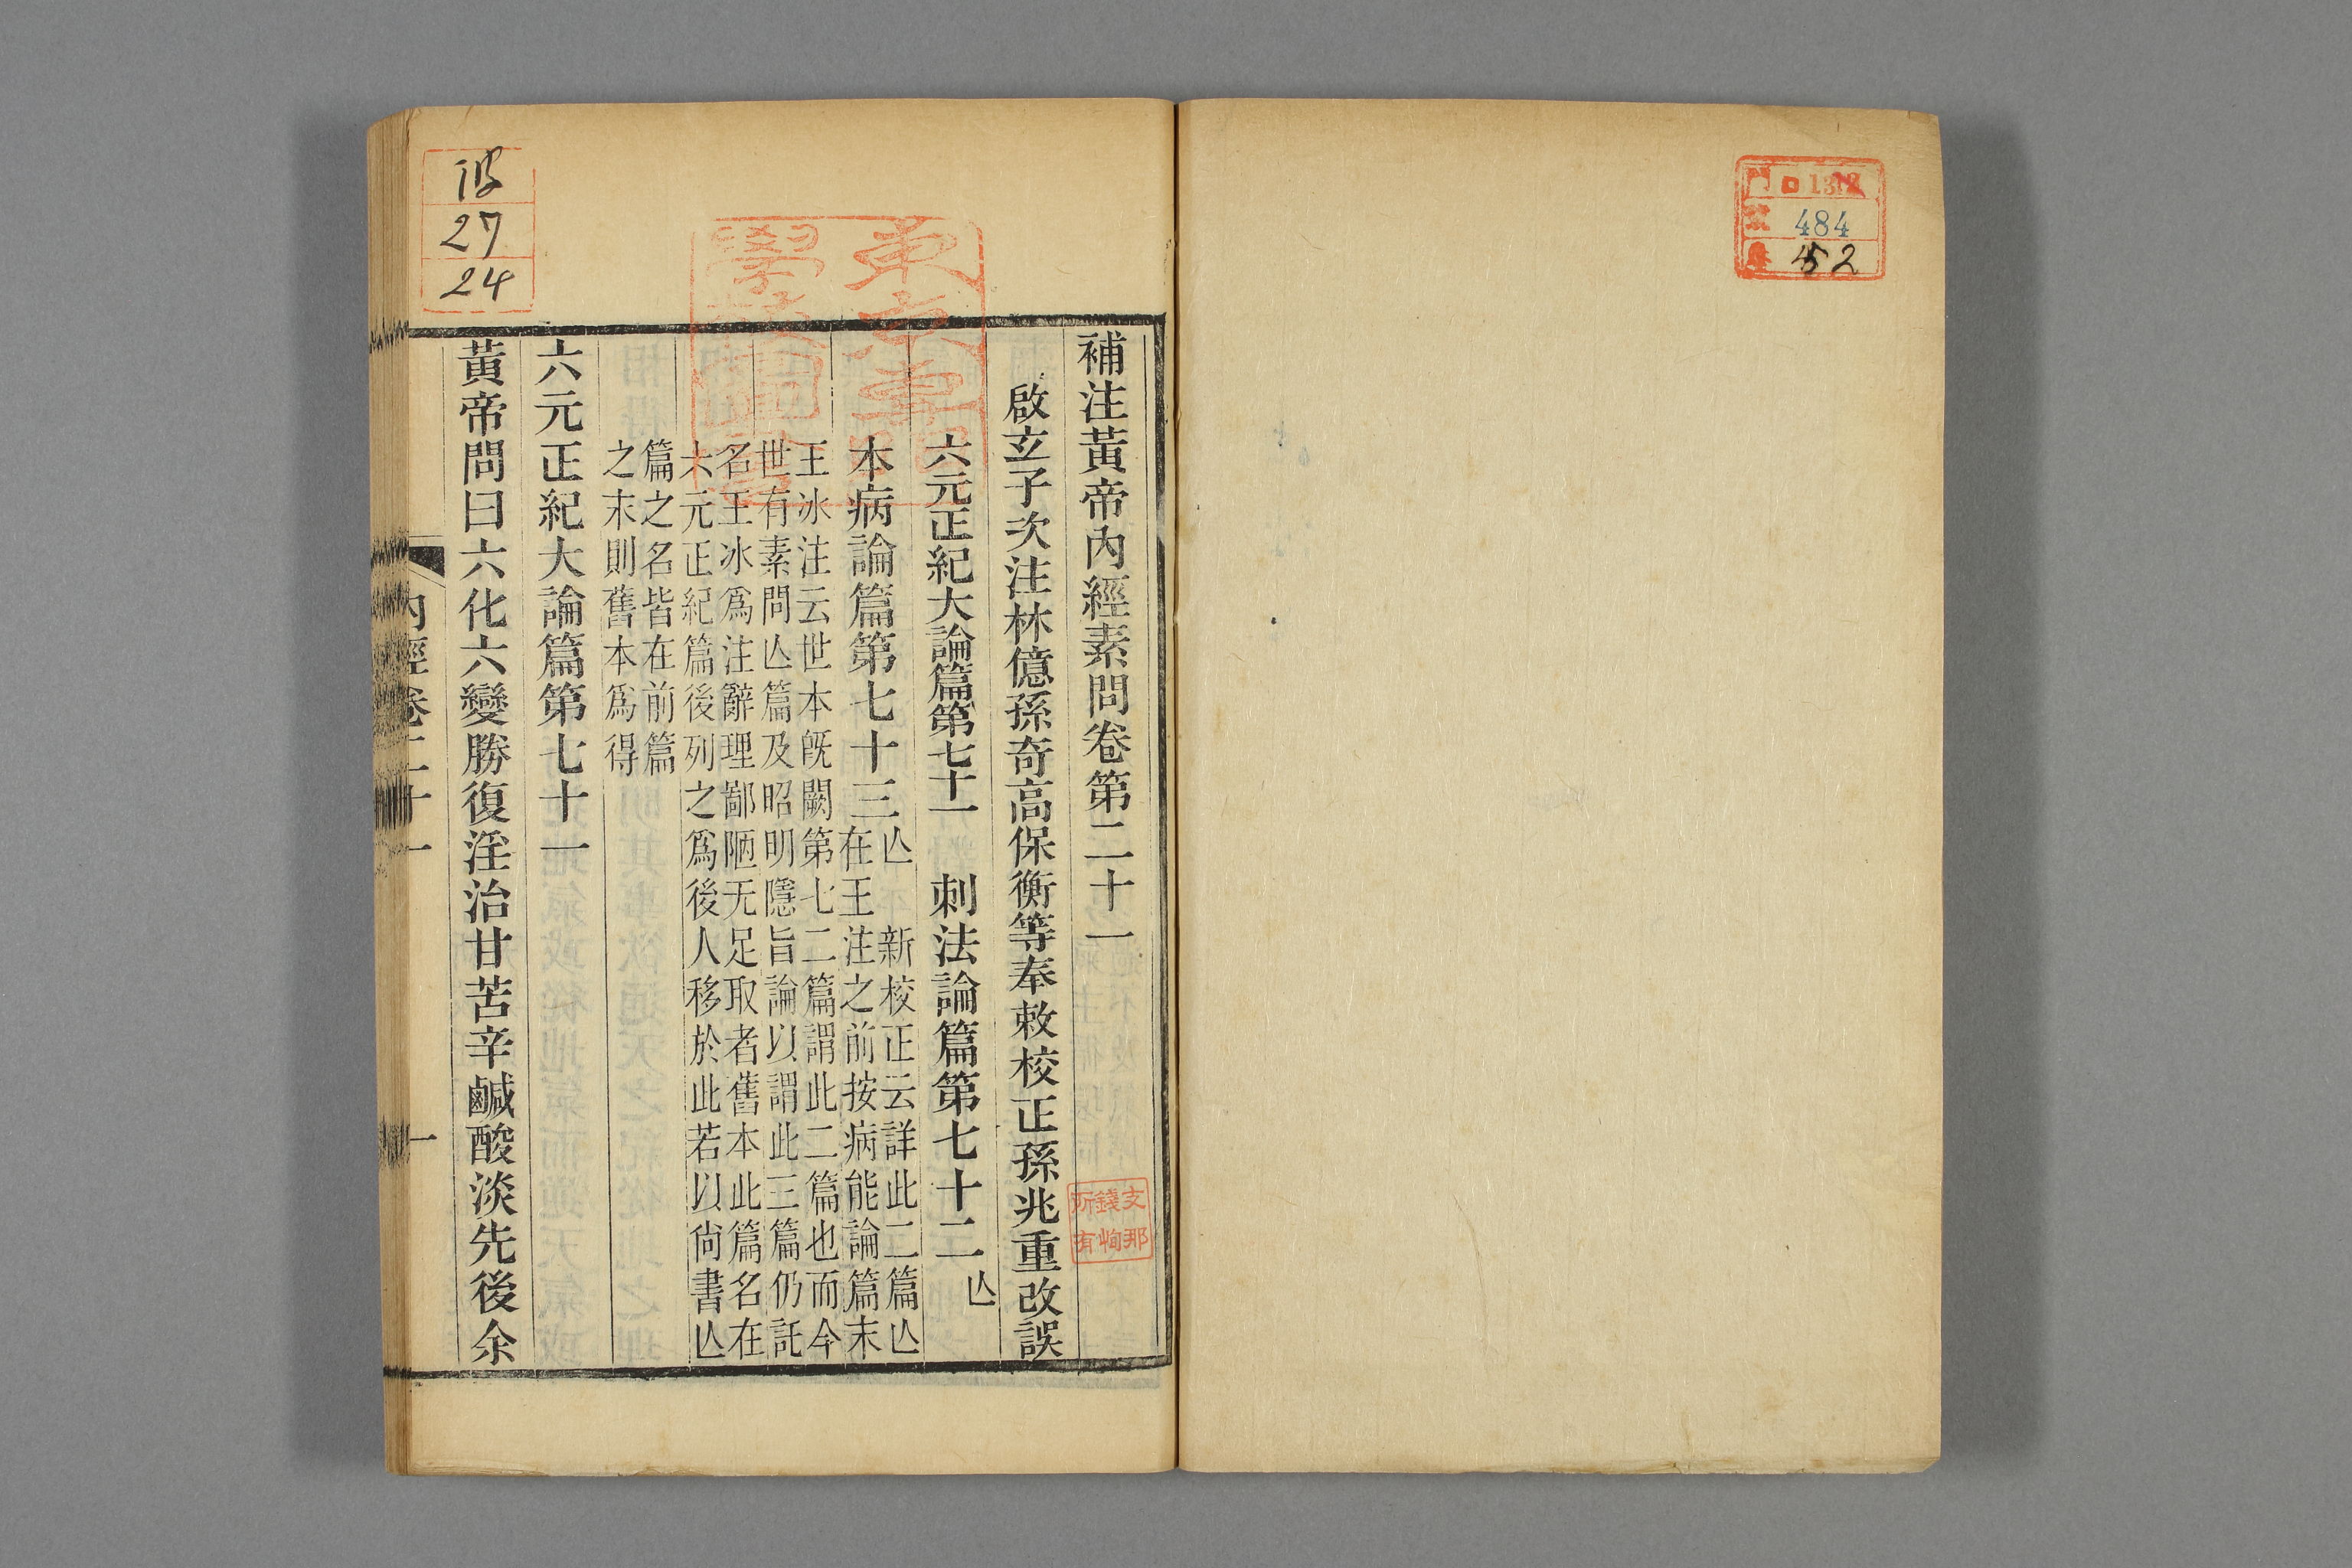 484
52
補注黃帝內經素問卷第二十一
啟玄子次注林億孫奇高保衡等奉敕校正孫兆重改誤
六元正紀大論篇第七十一
刺法論篇第七十二亾
本病論篇第七十三亾
新校正云詳此二篇亾
在王注之前按病能論篇末
王冰注云世本旣闕第七二篇謂此二篇也而今
世有素問亾篇及昭明隱旨論以謂此三篇仍託
名王冰爲注辭理鄙陋无足取者舊本此篇名在
六元正紀篇後列之爲後人移於此若以尙書亾
篇之名皆在前篇
之末則舊本爲得
六元正紀大論篇第七十一
黃帝問曰六化六變勝復淫治甘苦辛鹹酸淡先後余
內經卷二十一
一
支那
錢恂
所有
27
24